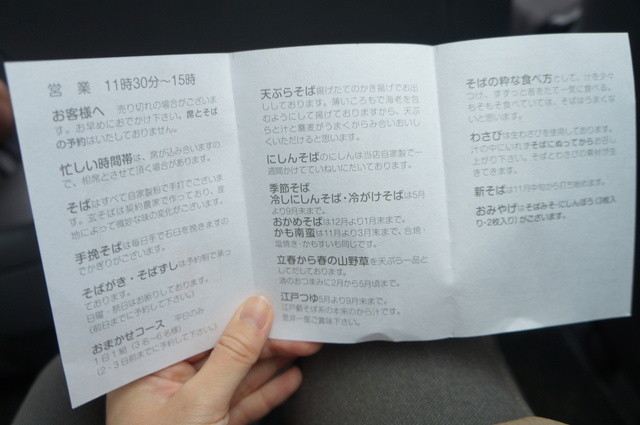 営業 11時30分～15時
お客様へ 売り切れの場合がございま
す。お早めにおでかけ下さい。席とそば
の予約はいたしておりません。
忙しい時間帯は、席が込み合いますの
で、相席とさせて頂く場合があります。
そばはすべて自家製粉で手打でございま
す。玄そばは契約農家で作っており、産
地によって微妙な味の変化がございます。
手挽そばは毎日手で石臼を挽きますの
でかぎりがございます。
そばがき・そばずしは予約制で承っ
ております。
日曜・祭日はお断りしております。
(前日までに予約して下さい)
おまかせコース 平日のみ
1日1組(3名～6名様)
(2・3日前までに予約して下さい)
天ぷらそば揚げたてのかき揚げでお出
ししております。薄いころもで海老を包
むようにして揚げておりますから、天ぷ
らと汁と蕎麦がうまくからみ合いおいし
くいただけると思います。
にしんそばのにしんは当店自家製で一
週間かけてていねいにだいております。
季節そば
冷しにしんそば・冷がけそばは5月
より9月末まで。
おかめそばは12月より1月末まで。
かも南蛮は11月より3月末まで、合焼・
塩焼き・かもすいも同じです。
立春から春の山野草を天ぷら一品と
してだしております。
酒のおつまみに2月から5月頃まで。
江戸つゆ5月より9月末まで。
江戸蕎そば系の本来のから汁です。
是非一度ご賞味下さい。
そばの粋な食べ方として、汁を少々
つけ、すすっと音をたて一気に食べる。
もそもそ食べていては、そばはうまくな
いと思います。
わさびは生わさびを使用しております。
汁の中にいれずそばにぬってからお召し
上がり下さい。そばとわさびの素材が生
きてきます。
新そばは11月中旬から打ち始めます。
おみやげはそばみそ・にしんぼう(3枚入
り・2枚入り)がございます。